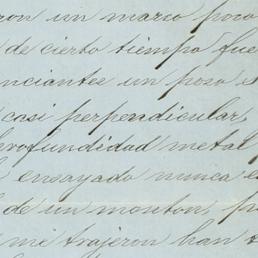 ron un marco poco
de cierto tiempo fue
nciantee un poso
casi perpendicular,
rofundidad metal
ensayado nunca e
de un monton, p
me trajeron han